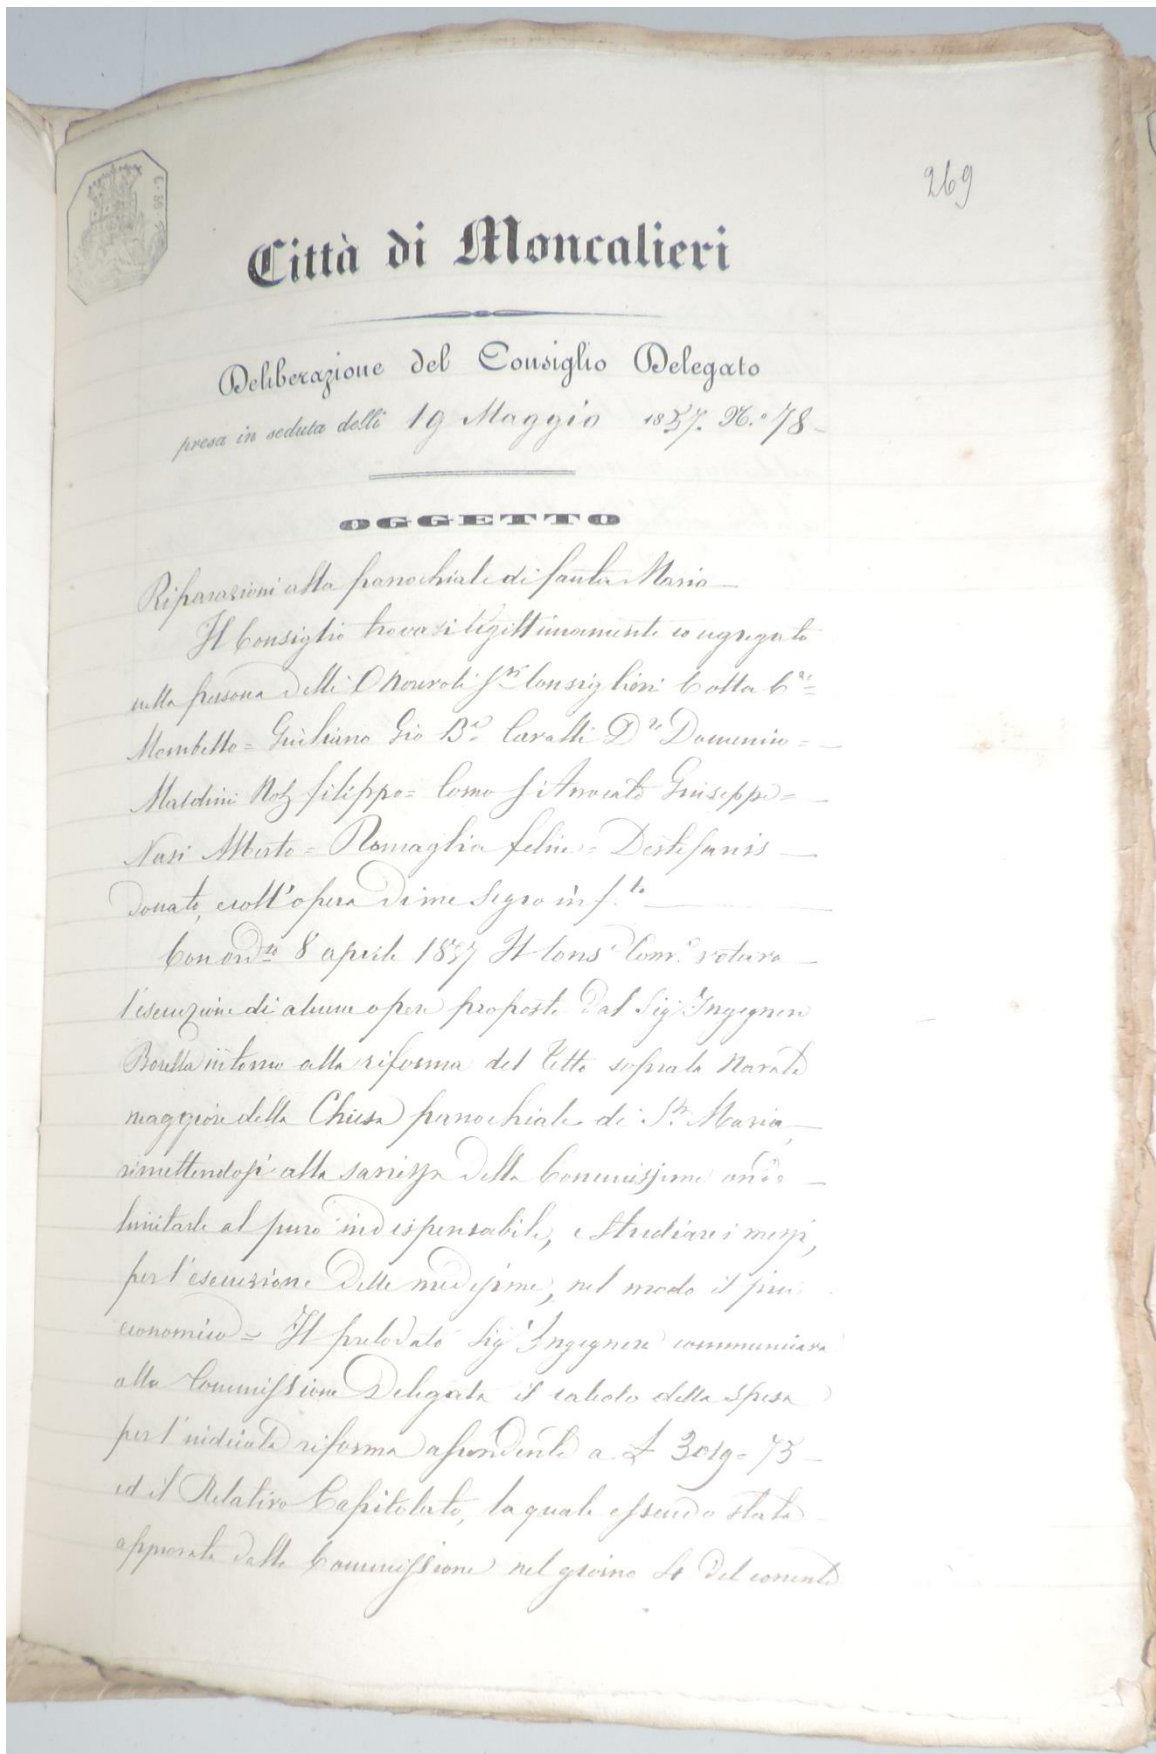 269
Città di Moncalieri
Deliberazione del Consiglio Delegato
presa in seduta delli 19 Maggio 1857. N.° 78
OGGETTO
Riparazioni alla parochiale di Santa Maria
Il Consiglio trovasi legittimamente congregato
nella persona delli Onorati Sri Consiglieri Cotta
Mombello = Giuliano Gio Ba Cavalli Dre Domenico =
Maldini Not Filippo = Como Giuseppe =
Nasi Alberto = Romaglia Felice = Destefanis
Donato, e coll'opera di me Segro infto
Con ordto 8 aprile 1857 Il Cons Com votava
l'esecuzione di alcune opere proposte dal Sig Ingegnere
Borella intorno alla riforma del Tetto sopra la Navata
maggiore della Chiesa parochiale di Sta Maria,
rimettendosi alla saviezza della Commissione onde
limitarle al puro indispensabile, e studiare i mezzi,
per l'esecuzione delle medesime, nel modo il piu
economico = Il prelodato Sig Ingegnere communicava
alla Commissione Delegata il calcolo della spesa
per l'indicata riforma ascendente a £ 3019=75
ed il Relativo Capitolato, la quale essendo stata
approvata dalla Commissione nel giorno 4 del corrente